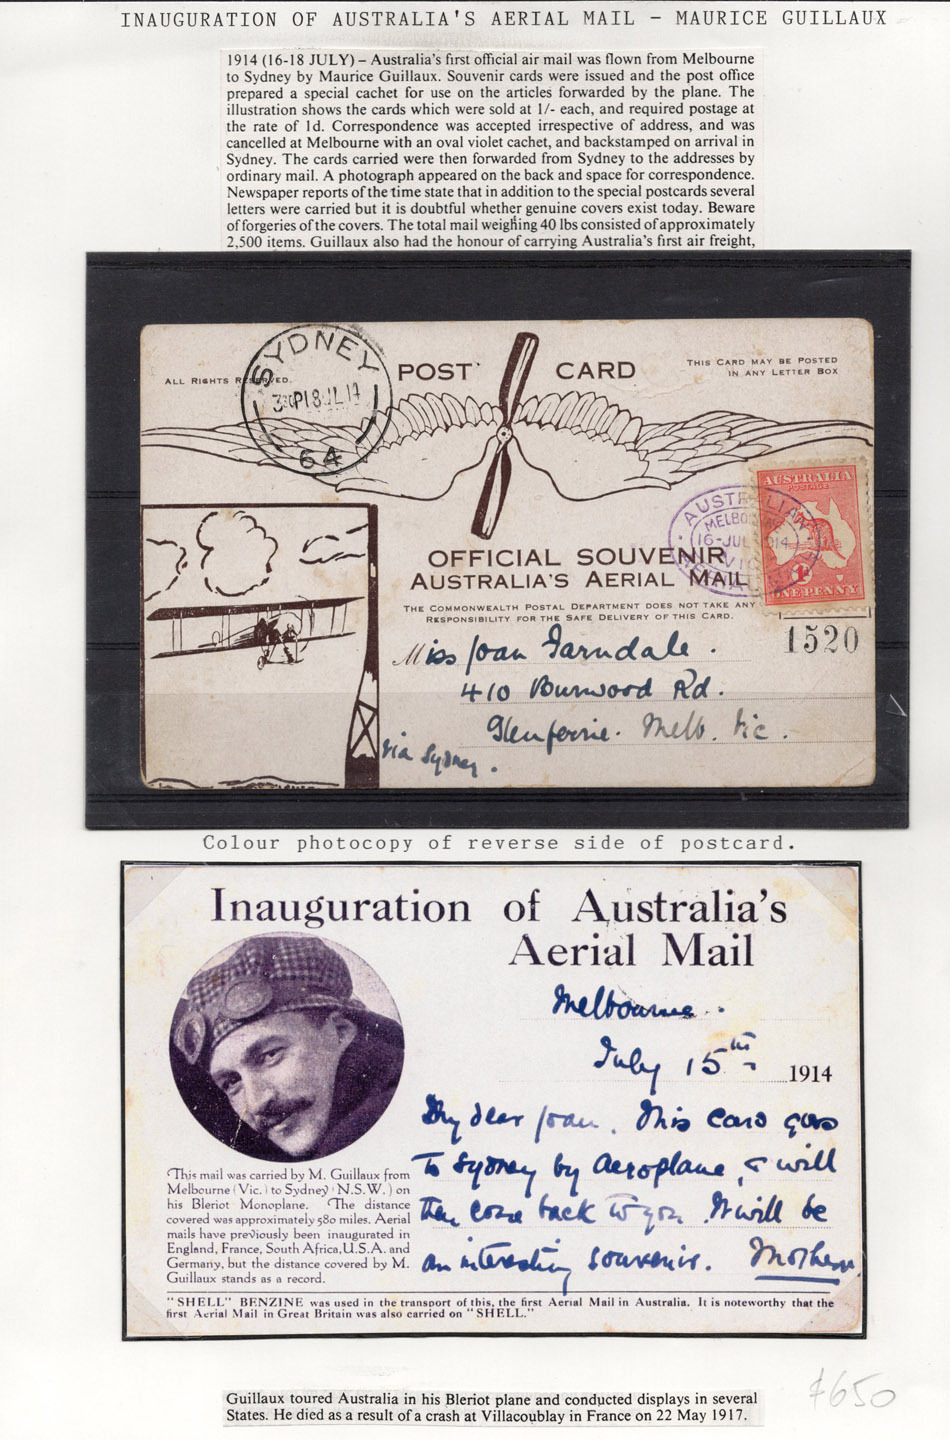 INAUGURATION OF AUSTRALIA'S AERIAL MAIL - MAURICE GUILLAUX
1914 (16-18 JULY) – Australia's first official air mail was flown from Melbourne
to Sydney by Maurice Guillaux. Souvenir cards were issued and the post office
prepared a special cachet for use on the articles forwarded by the plane. The
illustration shows the cards which were sold at 1/- each, and required postage at
the rate of 1d. Correspondence was accepted irrespective of address, and was
cancelled at Melbourne with an oval violet cachet, and backstamped on arrival in
Sydney. The cards carried were then forwarded from Sydney to the addresses by
ordinary mail. A photograph appeared on the back and space for correspondence.
Newspaper reports of the time state that in addition to the special postcards several
letters were carried but it is doubtful whether genuine covers exist today. Beware
of forgeries of the covers. The total mail weighing 40 lbs consisted of approximately
2,500 items. Guillaux also had the honour of carrying Australia's first air freight,
SYDNEY
18 JL 14
64
ALL RIGHTS RESERVED.
POST CARD
THIS CARD MAY BE POSTED
IN ANY LETTER BOX
AUSTRALIAN
MELBOURNE
16-JUL 1914
VIC
AUSTRALIA
POSTAGE
1D
ONE PENNY
OFFICIAL SOUVENIR
AUSTRALIA'S AERIAL MAIL
THE COMMONWEALTH POSTAL DEPARTMENT DOES NOT TAKE ANY
RESPONSIBILITY FOR THE SAFE DELIVERY OF THIS CARD.
1520
Miss Joan Farndale.
410 Burwood Rd.
Glenferrie. Melb. Vic.
via Sydney.
Colour photocopy of reverse side of postcard.
Inauguration of Australia's
Aerial Mail
Melbourne.
July 15th 1914
My dear Joan. This card goes
to Sydney by Aeroplane, & will
then come back to you. It will be
an interesting souvenir. Mother.
This mail was carried by M. Guillaux from
Melbourne (Vic.) to Sydney (N.S.W.) on
his Bleriot Monoplane. The distance
covered was approximately 580 miles. Aerial
mails have previously been inaugurated in
England, France, South Africa, U.S.A. and
Germany, but the distance covered by M.
Guillaux stands as a record.
"SHELL" BENZINE was used in the transport of this, the first Aerial Mail in Australia. It is noteworthy that the
first Aerial Mail in Great Britain was also carried on "SHELL."
Guillaux toured Australia in his Bleriot plane and conducted displays in several
States. He died as a result of a crash at Villacoublay in France on 22 May 1917.
£650